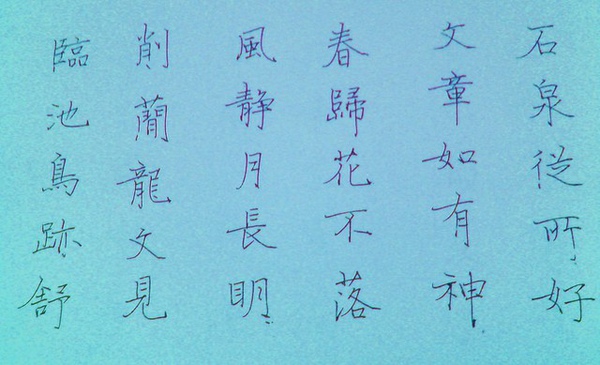 石泉從所好
文章如有神
春歸花不落
風靜月長明
削蕳龍文見
臨池鳥跡舒